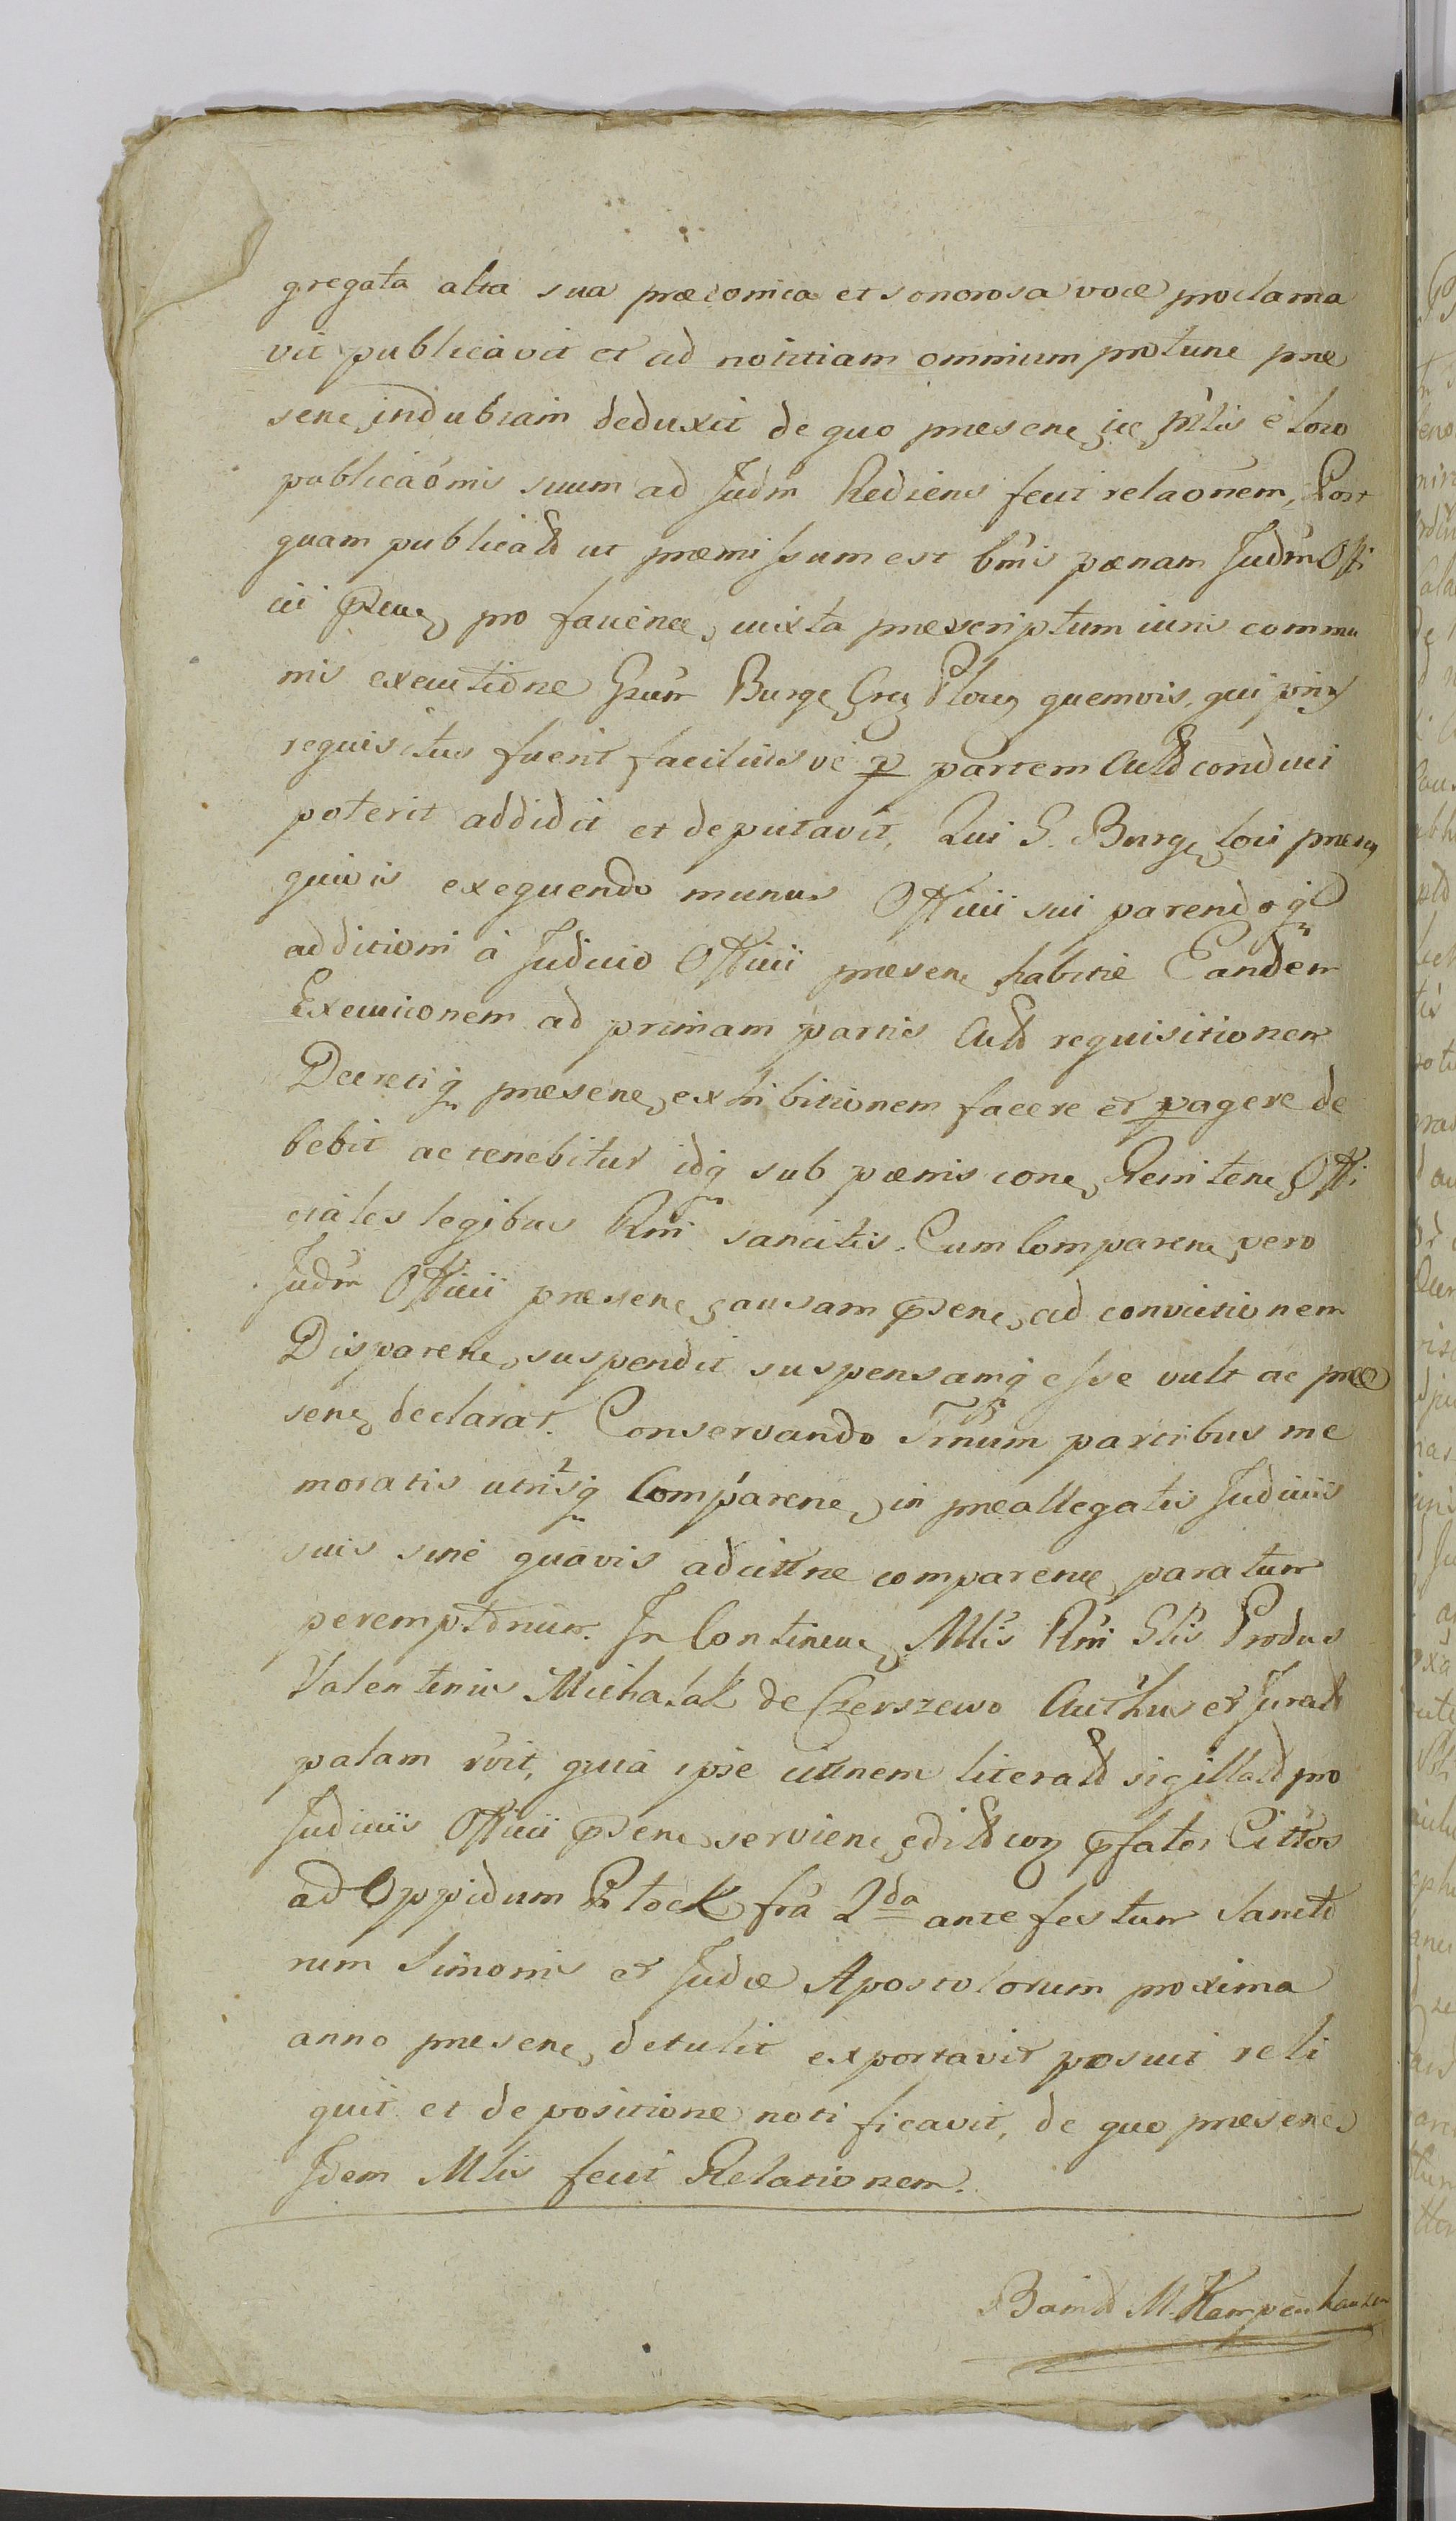 gregata alta sua præconica et sonorosa voce proclama
vit publicavit et ad notitiam omnium protunc præ
sen: indubiam deduxit de quo præsen: ite Mlis è loco
publicaōnis suum ad Judm Rediens fecit relaōnem, Post
quam publicat ut præmissum est bnis pœnam Judm Offi
cii pro faciend iuxta præscriptum iuris commu
nis executione Burg quemvis, qui
requisitus fuerit faciliusve p partem Act conduci
poterit addidit et deputavit, Qui G. Burg loci præsen
quivis exequendo munus Officii sui parendo q
additioni à Judicio Officii præsen habitæ Eandem
Execuicionem ad primam partis Act requisitionem
Decretiq præsen exhibitionem facere et pagere de
bebit ac tenebitur idq sub pœnis con Renitene Offi
ciales legibus Rni sancitis. Cum Comparen vero
Judm Officii præsen causam psen ad convictionem
Disparen suspendit suspensamq esse vult ac præ
sen declarat. Conservando Trnum partibus me
moratis utrisq Comparen in præallegatis Judiciis
suis sine quavis adcittne comparend paratum
peremptorium. In Continen Mlis Rni Glis Produs
Valentinus Michalak de Czerszewo Authus et Jurat
palam rvit, quia ipse cittnem literat sigillat pro
Judiciis Officii psen servien edit pfatos Cittos
ad Oppidum Płock fra 2da ante festum Sancto
rum Simonis et Judæ Apostolorum proxima
anno præsen detulit exportavit posuit reli
quit et depositione notificavit, de quo præsen
Idem Mlis fecit Relationem.
M. Kampenhauzen